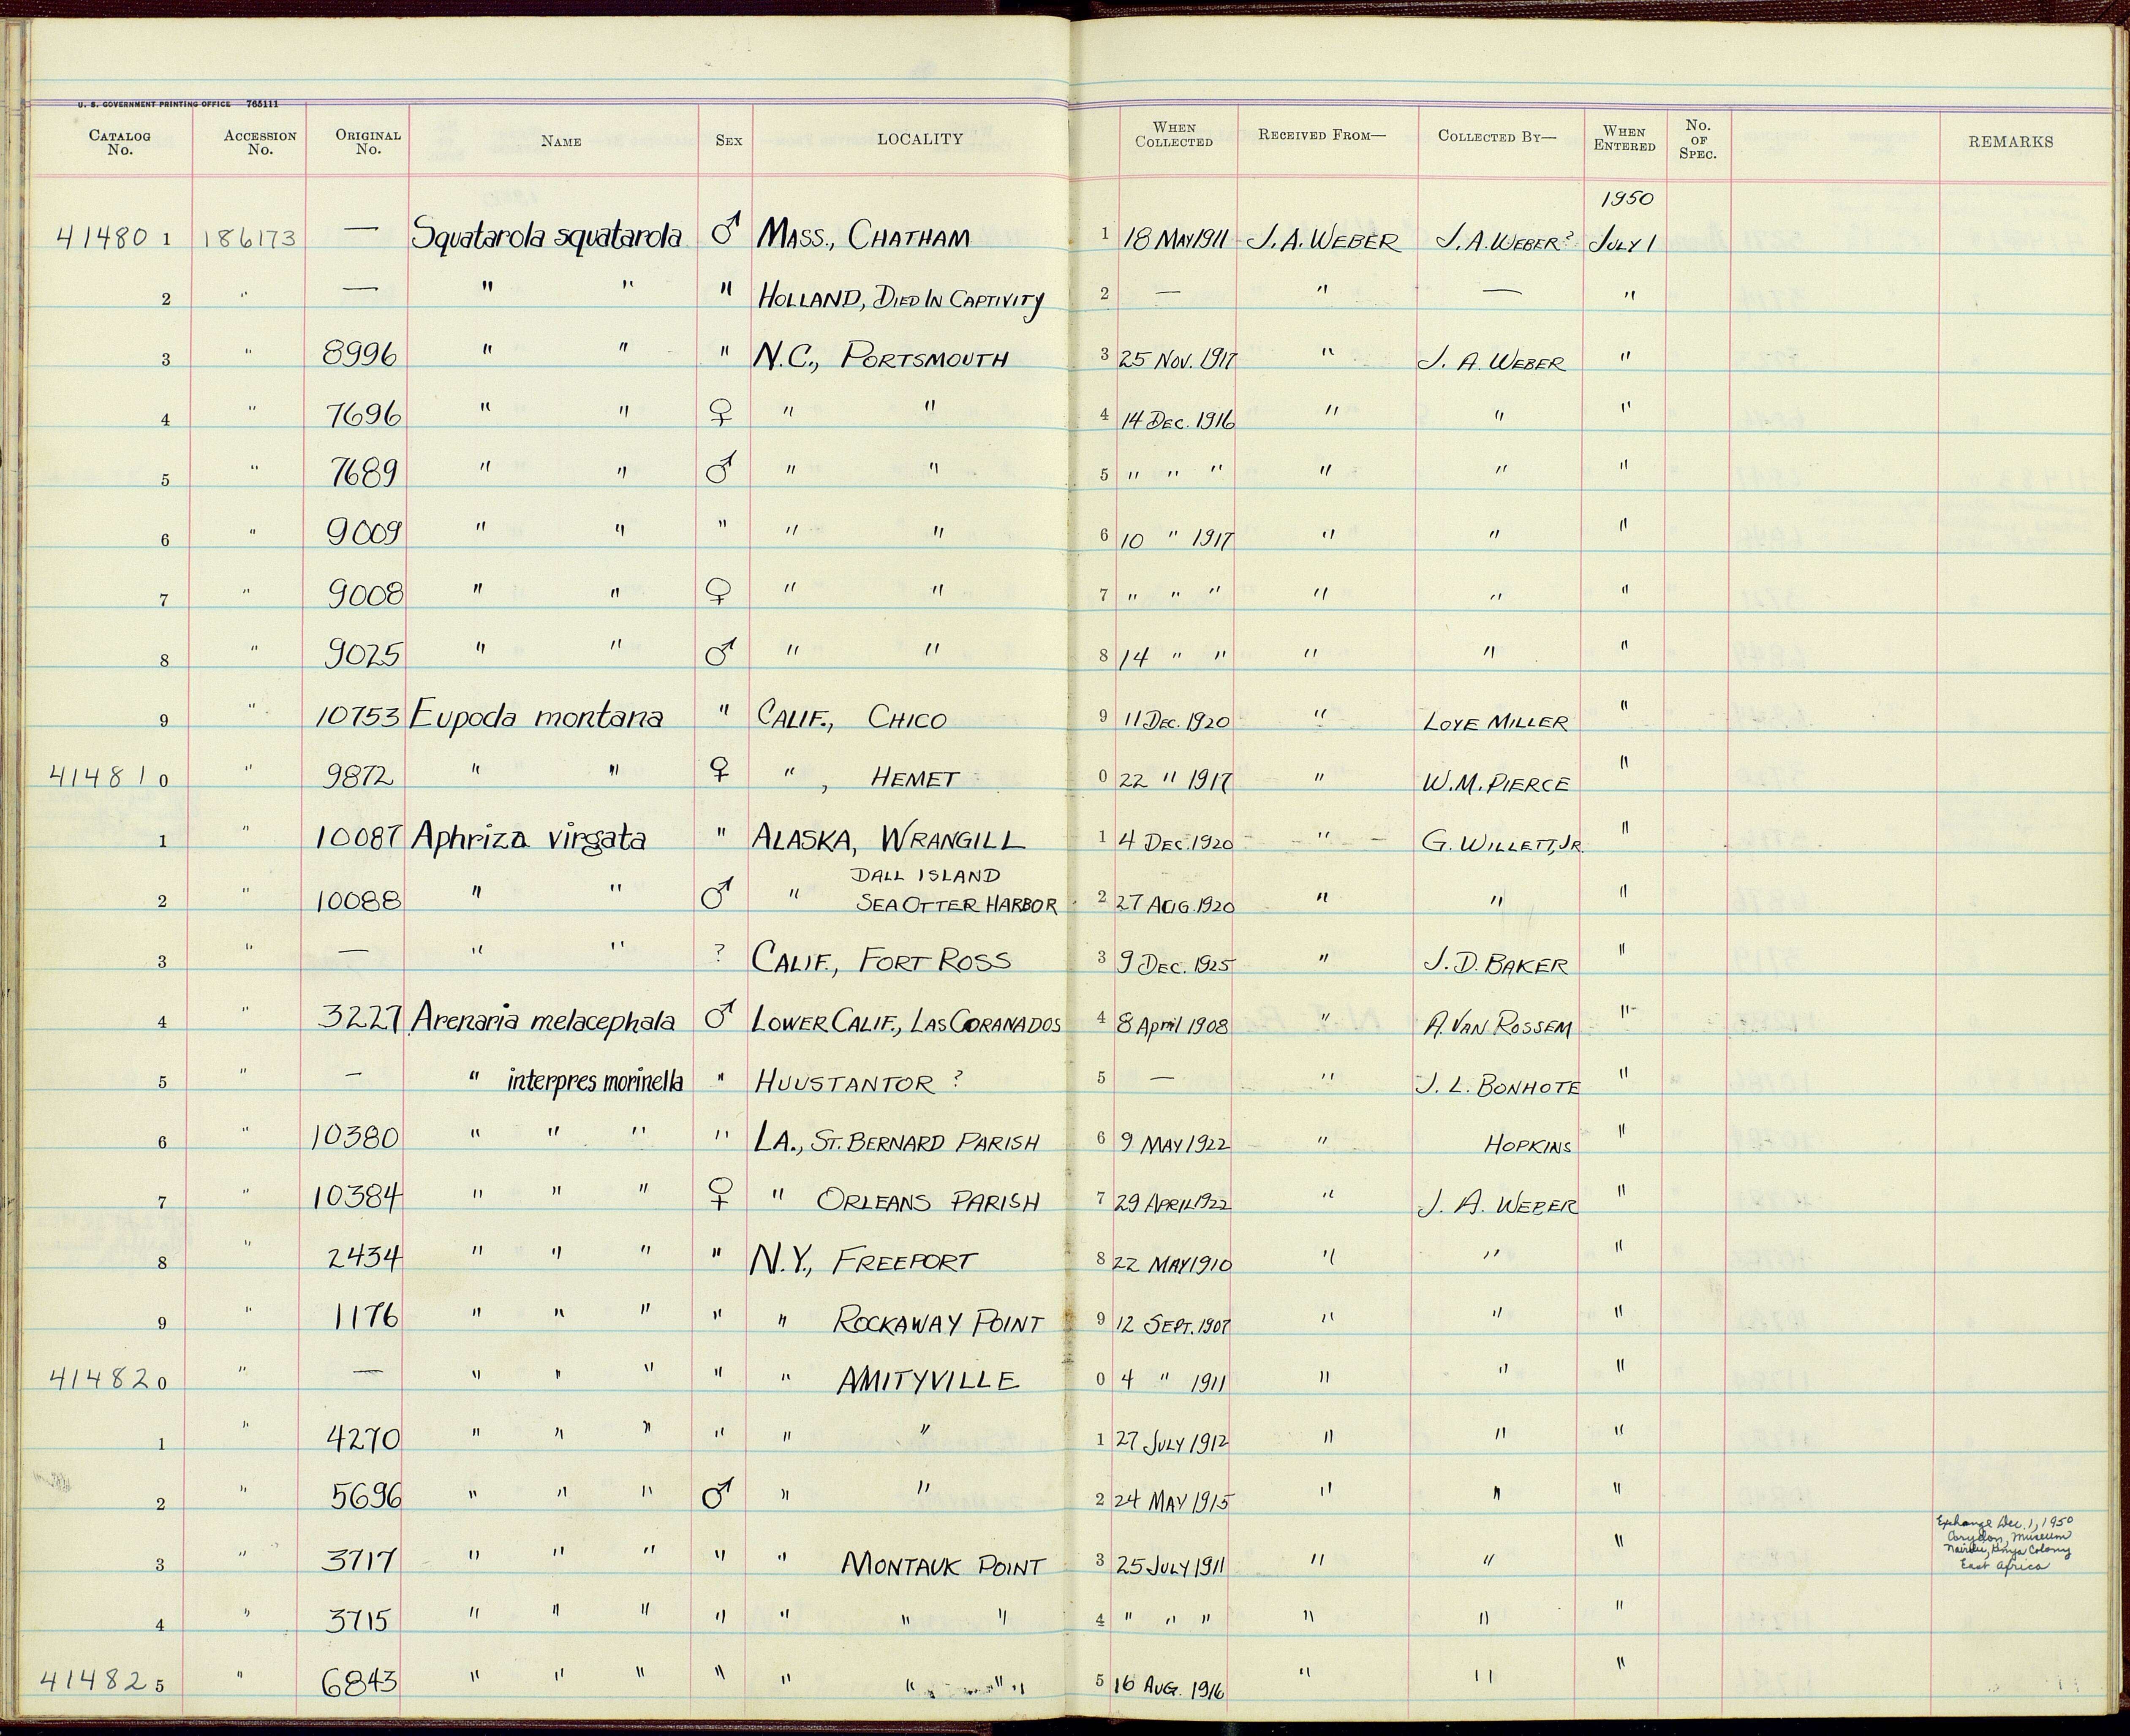 U. S. GOVERNMENT PRINTING OFFICE 765111
CATALOG No. ACCESSION No. ORIGINAL No. NAME SEX LOCALITY WHEN COLLECTED RECEIVED FROM— COLLECTED BY— WHEN ENTERED No. OF SPEC. REMARKS
1950
41480 1 186173 — Squatarola squatarola ♂ MASS., CHATHAM 1 18 MAY 1911 J. A. WEBER J. A. WEBER? JULY 1
2 " — " " " HOLLAND, DIED IN CAPTIVITY 2 — " — "
3 " 8996 " " " N.C., PORTSMOUTH 3 25 NOV. 1917 " J. A. WEBER "
4 " 7696 " " ♀ " " 4 14 DEC. 1916 " " "
5 " 7689 " " ♂ " " 5 " " " " " "
6 " 9009 " " " " " 6 10 " 1917 " " "
7 " 9008 " " ♀ " " 7 " " " " " "
8 " 9025 " " ♂ " " 8 14 " " " " "
9 " 10753 Eupoda montana " CALIF., CHICO 9 11 DEC. 1920 " LOYE MILLER "
41481 0 " 9872 " " ♀ " , HEMET 0 22 " 1917 " W. M. PIERCE "
1 " 10087 Aphriza virgata " ALASKA, WRANGILL 1 4 DEC. 1920 " G. WILLETT, JR. "
DALL ISLAND
2 " 10088 " " ♂ " SEA OTTER HARBOR 2 27 AUG. 1920 " " "
3 " — " " ? CALIF., FORT ROSS 3 9 DEC. 1925 " J. D. BAKER "
4 " 3227 Arenaria melacephala ♂ LOWER CALIF., LAS CORANADOS 4 8 April 1908 " A. VAN ROSSEM "
5 " — " interpres morinella " HUUSTANTOR ? 5 — " J. L. BONHOTE "
6 " 10380 " " " " LA., ST. BERNARD PARISH 6 9 MAY 1922 " HOPKINS "
7 " 10384 " " " ♀ " ORLEANS PARISH 7 29 APRIL 1922 " J. A. WEBER "
8 " 2434 " " " " N.Y., FREEPORT 8 22 MAY 1910 " " "
9 " 1176 " " " " " ROCKAWAY POINT 9 12 SEPT. 1907 " " "
41482 0 " — " " " " " AMITYVILLE 0 4 " 1911 " " "
1 " 4270 " " " " " " 1 27 JULY 1912 " " "
2 " 5696 " " " ♂ " " 2 24 MAY 1915 " " "
3 " 3717 " " " " " MONTAUK POINT 3 25 JULY 1911 " " " Exchange Dec. 1, 1950
Coryndon Museum
Nairobi, Kenya Colony
East Africa
4 " 3715 " " " " " " " 4 " " " " " "
41482 5 " 6843 " " " " " " " 5 16 AUG. 1916 " " "